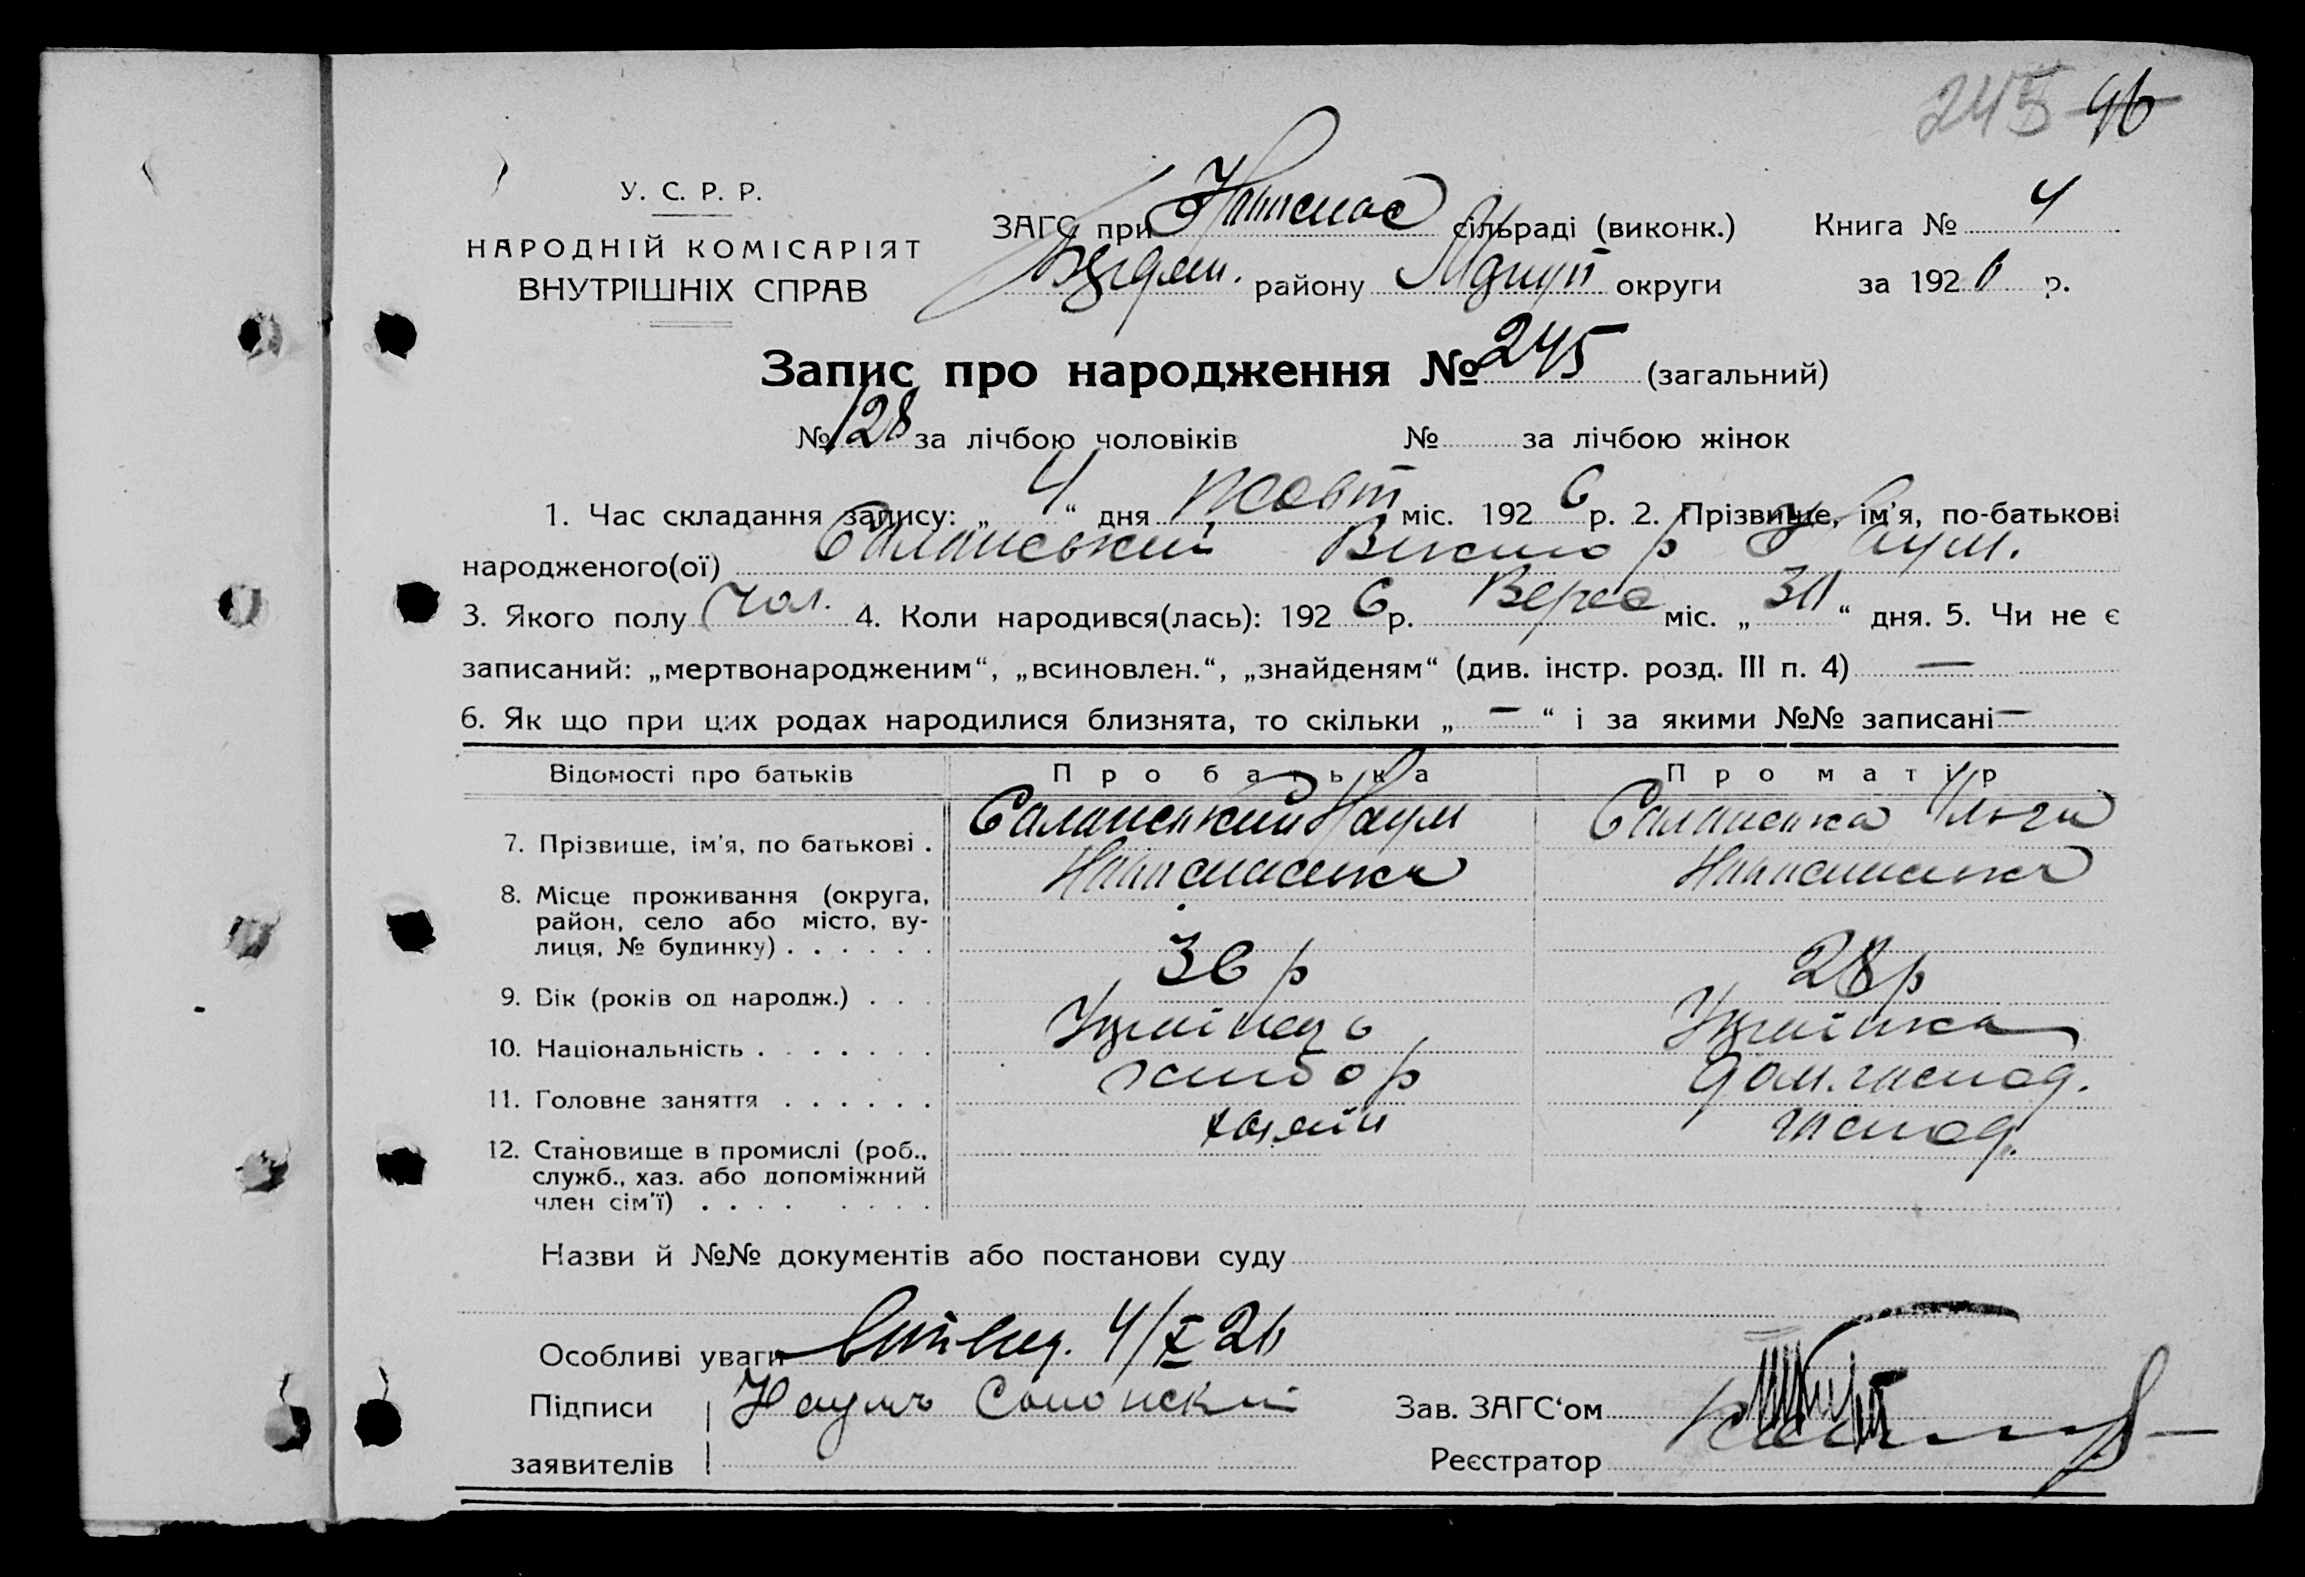 245 96
У. С. Р. Р.
НАРОДНІЙ КОМІСАРІЯТ
ВНУТРІШНІХ СПРАВ
ЗАГС при сільраді (виконк.) Книга № 4
району округи за 1926 р.
Запис про народження № 245 (загальний)
№ 128 за лічбою чоловіків № за лічбою жінок
1. Час складання запису: „ 4 “ дня жовт міс. 192 6 р. 2. Прізвище, ім'я, по-батькові
народженого(ої) Саланський Віктор Наум.
3. Якого полу чол. 4. Коли народився(лась): 192 6 р. Верес міс. „ 30 “ дня. 5. Чи не є
записаний: „мертвонародженим“, „всиновлен.“, „знайденям“ (див. інстр. розд. III п. 4) —
6. Як що при цих родах народилися близнята, то скільки „ — “ і за якими №№ записані —
Відомості про батьків Про батька Про матір
7. Прізвище, ім'я, по батькові . Саланський Наум Саланська Ольга
8. Місце проживання (округа,
район, село або місто, ву-
лиця, № будинку) . . . . . .
9. Вік (років од народж.) . . . 36 р 28 р
10. Національність . . . . . . . Українець Українка
11. Головне заняття . . . . . . хлібор дом. господ.
12. Становище в промислі (роб.,
служб., хаз. або допоміжний
член сім'ї) . . . . . . . . хазяїн господ.
Назви й №№ документів або постанови суду
Особливі уваги 4/X 26
Підписи Наумъ Солонский Зав. ЗАГС‘ом
заявителів Реєстратор